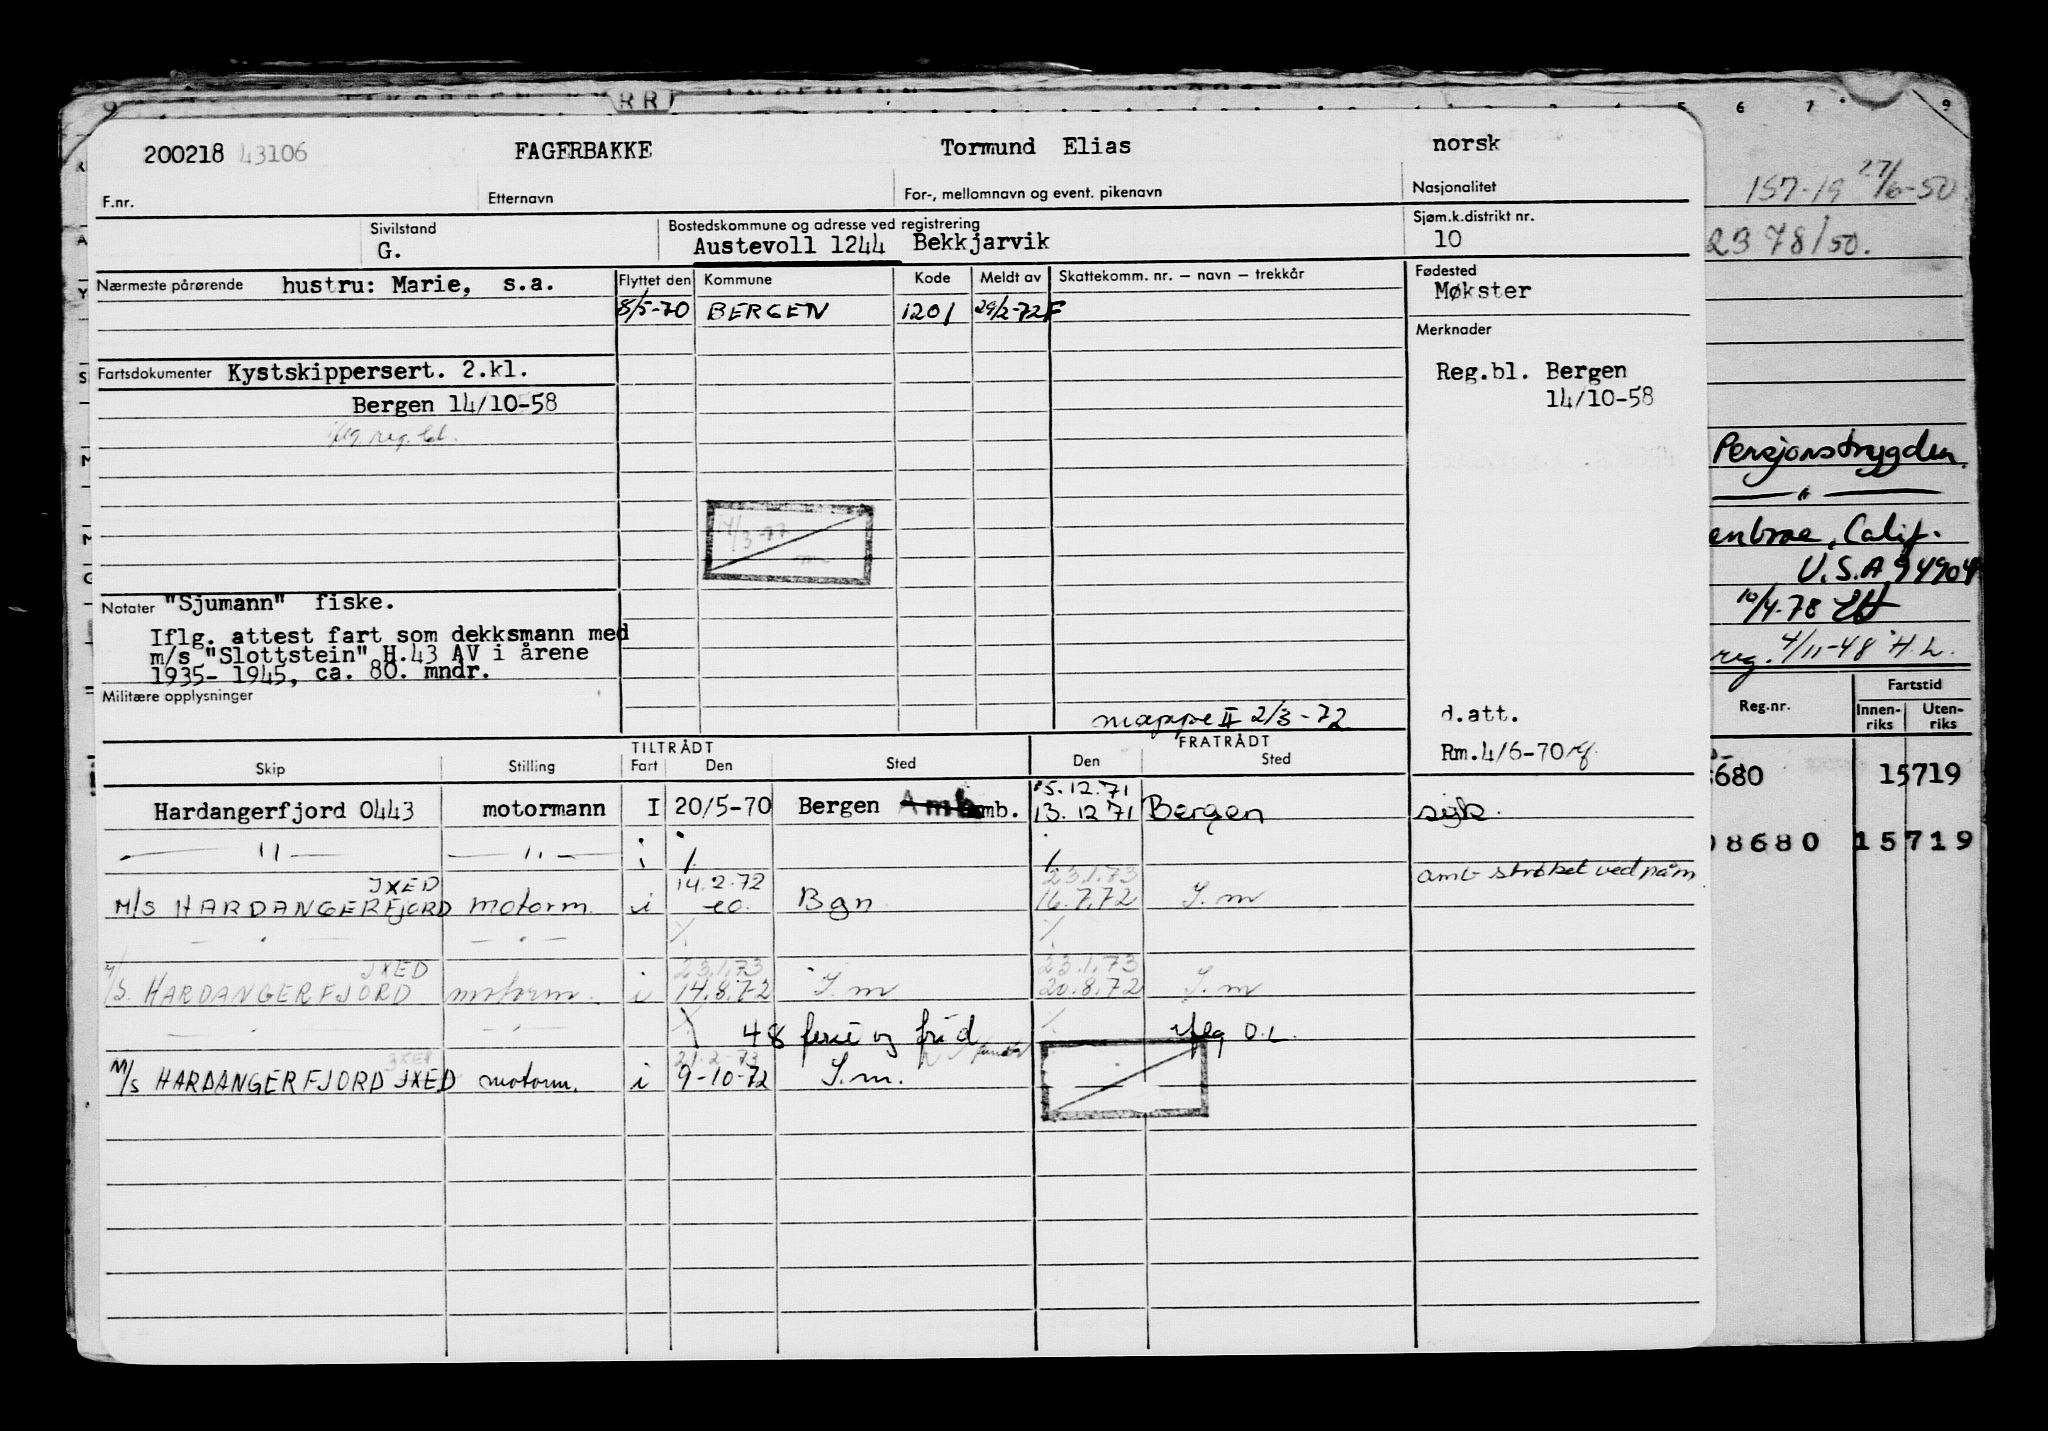 200218 43106 FAGERBAKKE Tormund Elias norsk
F.nr. Etternavn For-, mellomnavn og event. pikenavn Nasjonalitet
Sivilstand Bostedskommune og adresse ved registrering Sjøm.k.distrikt nr.
G. Austevoll 1244 Bekkjarvik 10
Nærmeste pårørende hustru: Marie, s.a. Flyttet den Kommune Kode Meldt av Skattekomm. nr. – navn – trekkår Fødested
Møkster
8/5-70 BERGEN 1201 29/2-72F
Merknader
Fartsdokumenter Kystskippersert. 2.kl. Reg.bl. Bergen
Bergen 14/10-58 14/10-58
iflg reg. bl.
14/3-72
Notater "Sjumann" fiske.
Iflg. attest fart som dekksmann med
m/s "Slottstein" H.43 AV i årene
1935- 1945, ca. 80. mndr.
Militære opplysninger
mappe II 2/3-72 d.att.
Rm.4/6-70
TILTRÅDT FRATRÅDT
Skip Stilling Fart Den Sted Den Sted
15.12.71
Hardangerfjord 0443 motormann I 20/5-70 Bergen Amb mb. 13.12 71 Bergen sjk.
— " — — " — i
amb strøket ved påm
JXED 14.2.72 23.1.73
M/S HARDANGERFJORD motorm. i eo. Bgn 16.7.72 S.m
— " — — " —
JXED 23.1.73 23.1.73
M/S. HARDANGERFJORD motorm. i 14.8.72 S.m 20.8.72 S.m
— " — — " — 48 ferie og frid iflg O.L.
JXED 21.2-73
M/S HARDANGERFJORD JXED motorm. i 9-10-72 S.m.
RR
5 6 7 9
157-19 27/6-50
2378/50.
Pensjonstrygden.
— " —
enbrae, Calif.
U.S.A 94904
10/4.78 EH
reg. 4/11-48 H.L.
Fartstid
Reg.nr. Innen-riks Uten-riks
680 15719
08680 15719